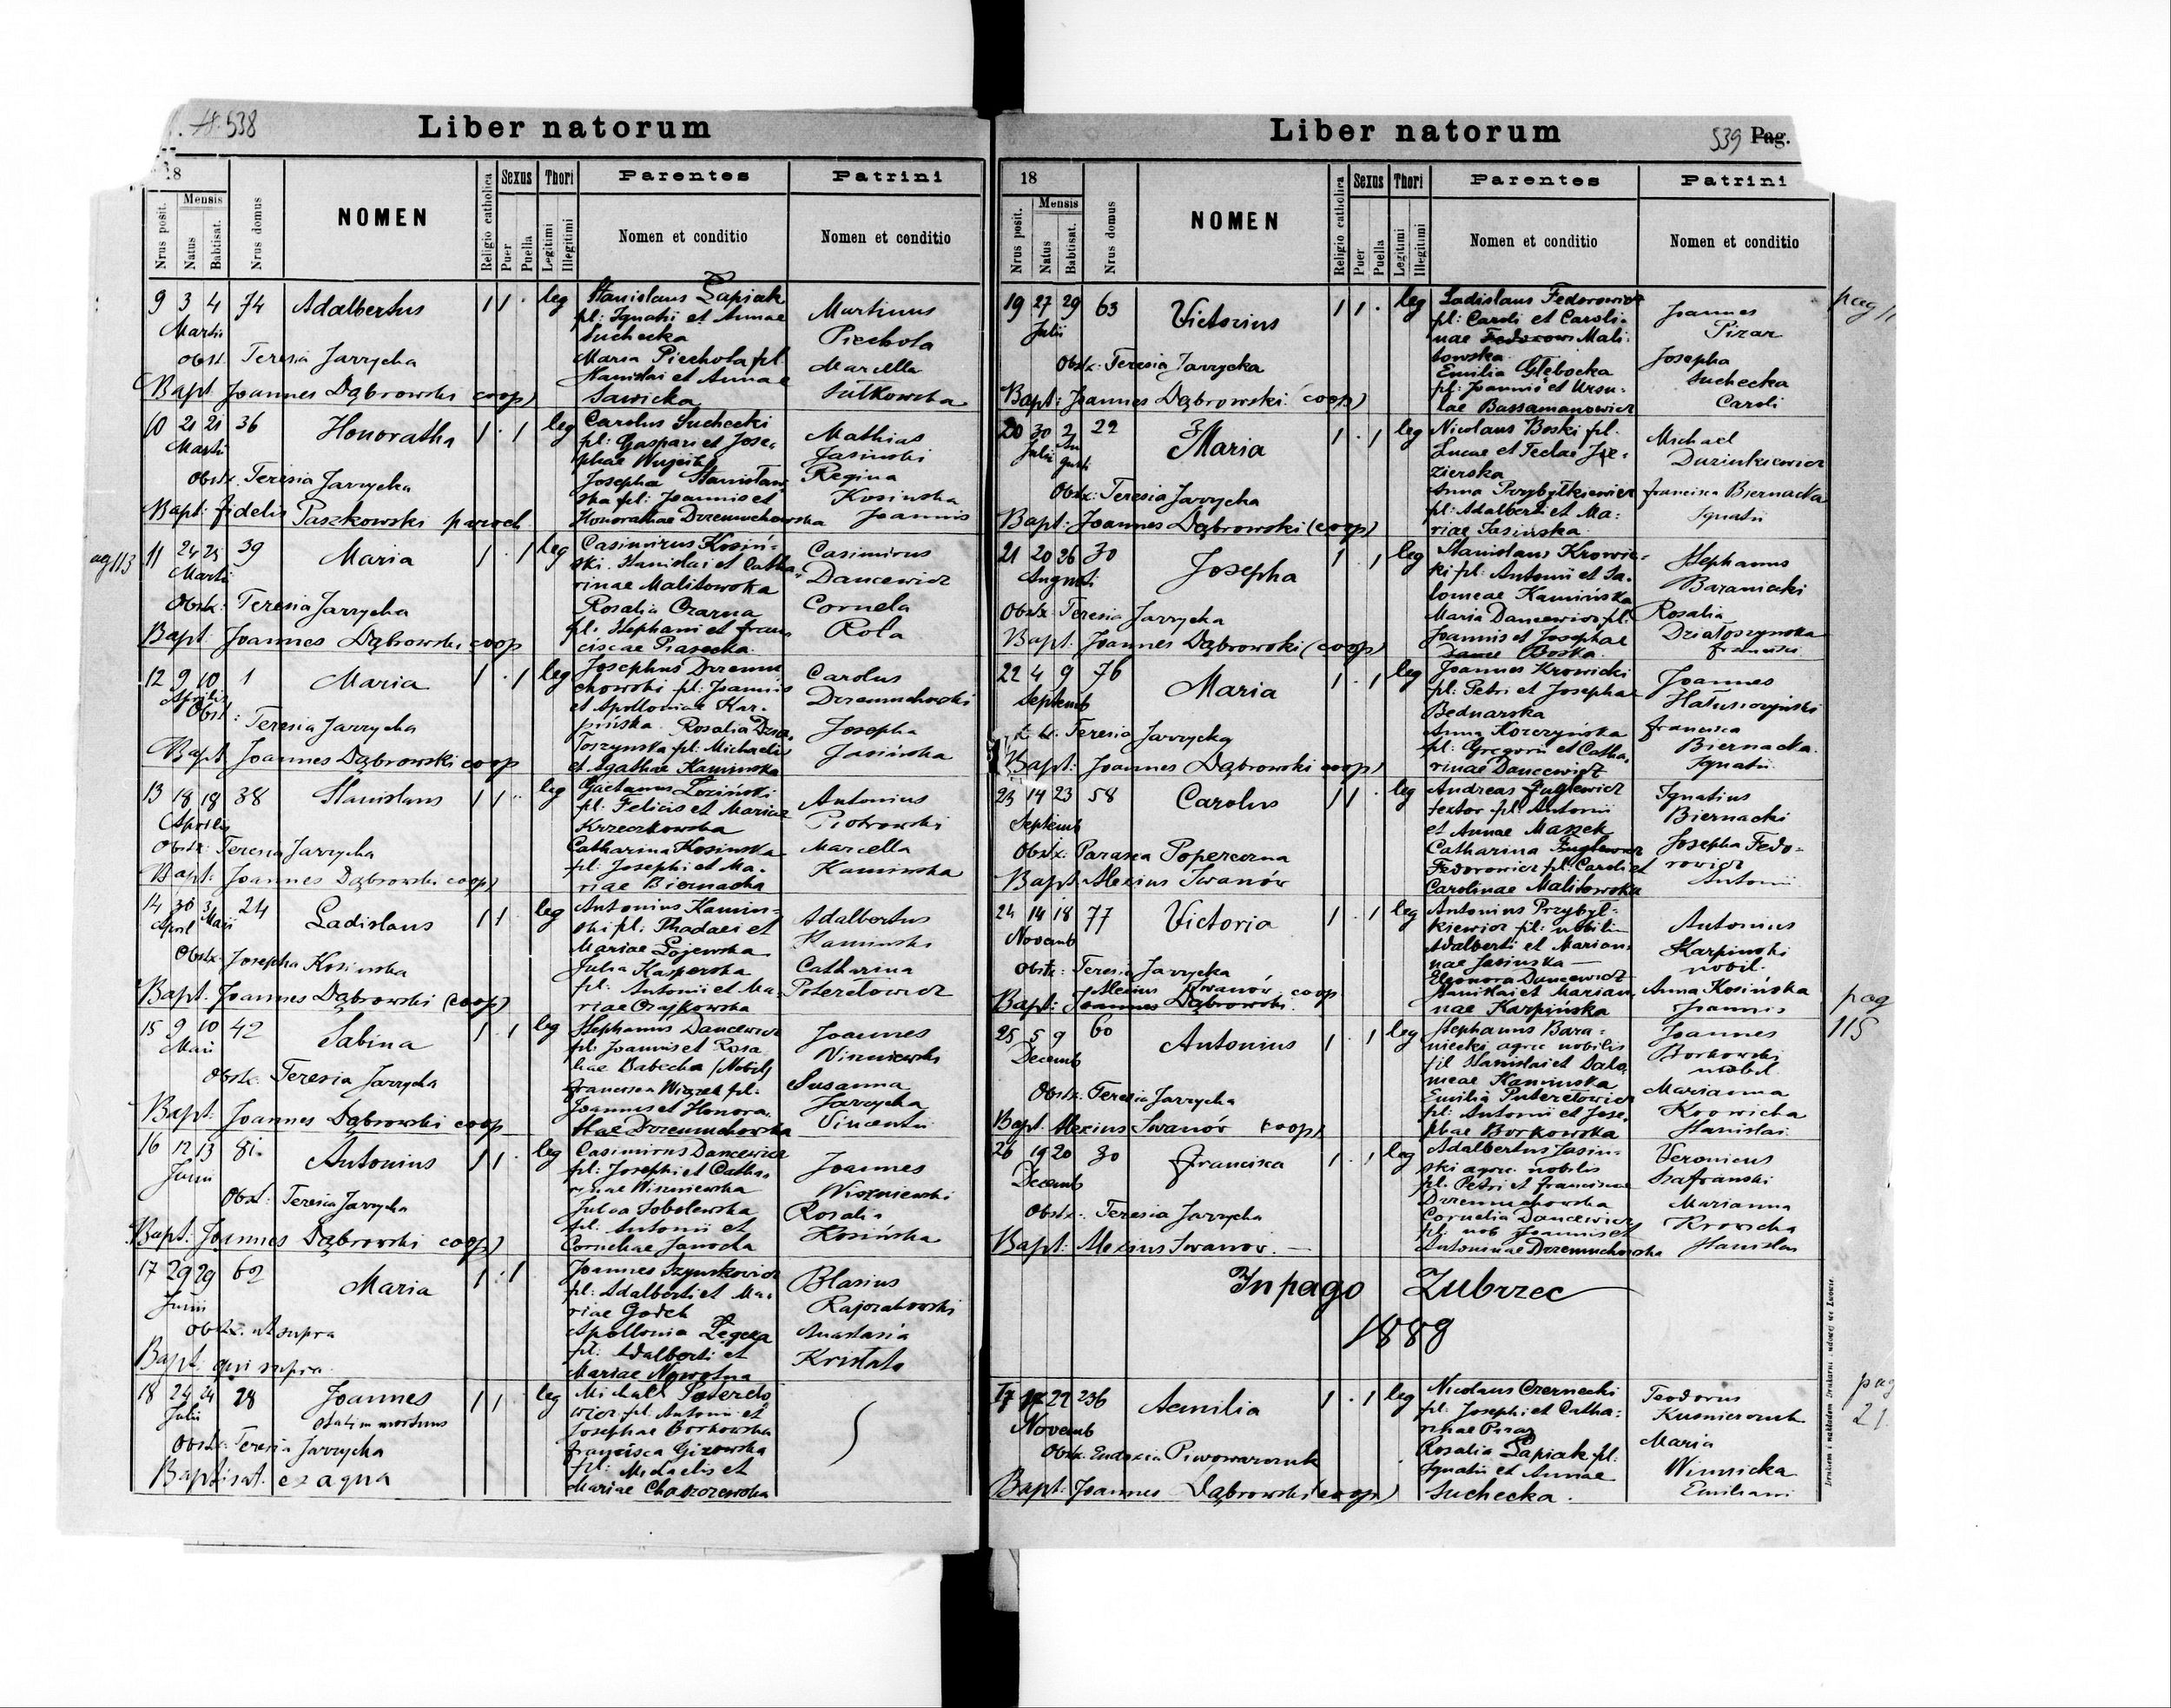 538
Liber natorum
18
Nrus posit.
Mensis
Natus
Babtisat.
Nrus domus
NOMEN
Religio catholica
Sexus
Puer
Puella
Thori
Legitimi
Illegitimi
Parentes
Nomen et conditio
Patrini
Nomen et conditio
9 3 4 74 Adalbertus 1 1 . leg
Martii
Obst. Teresia Jarzycka
Bapt. Joannes Dąbrowski coop)
Stanislaus Łapiak
fil: Ignatii et Annae
Suchecka
Maria Piechola fil.
Stanislai et Annae
Sawicka
Martinus
Piechola
Marcella
Sutkowska
10 21 21 36 Honoratha 1 . 1 leg
Martii
Obstx. Teresia Jarzycka
Bapt: Fidelis Paszkowski paroch
Carolus Suchecki
fil: Gaspari et Jose-
phae
Josepha Stanisław
ska fil: Joannis et
Honorathae Drzemuchowska
Mathias
Jasinski
Regina
Kosinska
Joannis
ag 113
11 24 25 39 Maria 1 . 1 leg
Martii
Obstx: Teresia Jarzycka
Bapt: Joannes Dąbrowski coop
Casimirus Kosiń-
ski. Stanislai et Catha-
rinae Malitowska
Rosalia Czarna
fil: Stephani et Fran
ciscae Piasecka
Casimirus
Dancewicz
Cornela
Rola
12 9 10 1 Maria 1 . 1 leg
Aprilis
Obst: Teresia Jarzycka
Bapt. Joannes Dąbrowski coop
Josephus Drzemu
chowski fil: Joannis
et Apolloniae Kar-
pińska. Rosalia Dzia
łoszynska fil: Michaelis
et Agathae Kaminska
Carolus
Drzemuchowski
Josepha
Jasińska
13 18 18 38 Stanislaus 1 1 . leg
Aprilis
Obstx: Teresia Jarzycka
Bapt: Joannes Dąbrowski coop)
Gaetanus Łoziński
fil: Felicis et Mariae
Krzeczkowska
Catharina Kosinska
fil: Josephi et Ma-
riae Biernacka
Antonius
Piotrowski
Marcella
Kaminska
14 30 3 24 Ladislaus 1 1 leg
April Maii
Obstx. Josepha Kosinska
Bapt. Joannes Dąbrowski (coop)
Antonius Kamins-
ski fil: Thadaei et
Mariae Łojewska
Julia Kasperska
fil: Antonii et Ma-
riae Czajkowska
Adalbertus
Kaminski
Catharina
Poteretowicz
15 9 10 42 Sabina 1 . 1 leg
Maii
Obstx. Teresia Jarzycka
Bapt: Joannes Dąbrowski coop
Stephanus Dancewicz
fil. Joannis et Rosa
liae Babecka /Nobil/
Francisca Wiącek fil.
Joannis et Honora-
thae Drzemuchowska
Joannes
Wiszniewski
Susanna
Jarzycka
Vincentii
16 12 13 81. Antonius 1 1 . leg
Junii
Obst: Teresia Jarzycka
Bapt: Joannes Dąbrowski coop)
Casimirus Dancewicz
fil: Josephi et Catha-
rinae Wiszniewska
Julia Sobolewska
fil: Antonii et
Corneliae Janocka
Joannes
Wiszniewski
Rosalia
Kosińska
17 29 29 62 Maria 1 . 1
Junii
Obstx. ut supra
Bapt. qui supra
Joannes Szymkowicz
fil: Adalberti et Ma-
riae Godek
Apollonia Łęcka
fil: Adalberti et
Mariae Nowotna
Blasius
Anastasia
18 24 24 28 Joannes 1 1 . leg
Julii
statim mortuus
Obstx: Teresia Jarzycka
Baptisat. ex aqua
Michael
wicz fil. Antonii et
Josephae Borkowska
Francisca Gizowska
fil: Michaelis et
Mariae
Liber natorum
539 Pag.
18
Nrus posit.
Mensis
Natus
Babtisat.
Nrus domus
NOMEN
Religio catholica
Sexus
Puer
Puella
Thori
Legitimi
Illegitimi
Parentes
Nomen et conditio
Patrini
Nomen et conditio
19 27 29 63 Victorius 1 1 . leg
Julii
Obstx: Teresia Jarzycka
Bapt: Joannes Dąbrowski (coop)
Ladislaus Fedorowicz
fil: Caroli et Caroli-
nae Fedorow Mali-
towska
Emilia Głębocka
fil: Joannis et Ursu-
lae Bassamanowicz
Joannes
Pizar
Josepha
Suchecka
Caroli
20 30 2 22 Maria 1 . 1 leg
Julii Au
gusti
Obstx: Teresia Jarzycka
Bapt: Joannes Dąbrowski (coop)
Nicolaus Boski fil.
Lucae et Teclae Je-
zierska
Anna Przybyłkiewicz
fil: Adalberti et Ma-
riae Jasinska
Michael
Francisca Biernacka
Ignatii
21 20 26 30 Josepha 1 . 1 leg
Augusti
Obstx: Teresia Jarzycka
Bapt. Joannes Dąbrowski (coop)
Stanislaus Krowic-
ki fil: Antonii et Sa-
lomeae Kamińska
Maria Dancewicz fil:
Joannis et Josephae
Dance Boska
Stephanus
Baraniecki
Rosalia
Działoszynska
Francisci
22 4 9 76 Maria 1 . 1 leg
Septemb
Teresia Jarzycka
Bapt: Joannes Dąbrowski coop)
Joannes Krowicki
fil: Petri et Josephae
Bednarska
Anna Korczyńska
fil: Gregorii et Catha-
rinae Dancewicz
Joannes
Francisca
Biernacka
Ignatii
23 14 23 58 Carolus 1 1 . leg
Septemb
Obstx: Parasca Popereczna
Bapt. Alexius Iwanów
Andreas
textor fil: Antonii
et Annae Maszek
Catharina
Fedorowicz fil: Caroli et
Carolinae Malitowska
Ignatius
Biernacki
Josepha Fedo-
rowicz
Antonii
24 14 18 77 Victoria 1 . 1 leg
Novemb
Obstx: Teresia Jarzycka
Alexius Iwanów coop
Bapt: Joannes Dąbrowski.
Antonius Przybył-
kiewicz fil: nobilis
Adalberti et Marian-
nae Jasinska
Eleonora Dancewicz
Stanislai et Marian-
nae Karpińska
Antonius
Karpinski
nobil.
Anna Kosińska
Joannis
25 5 9 60 Antonius 1 . 1 leg
Decemb
Obstx: Teresia Jarzycka
Bapt. Alexius Iwanów coop)
Stephanus Bara-
niecki agric nobilis
fil Stanislai et Salo
meae Kaminska
Emilia Puteretowicz
fil: Antonii et Jose-
phae Borkowska
Joannes
Borkowski
nobil
Marianna
Krowicka
Stanislai
pag
115
26 19 20 30 Francisca 1 . 1 leg
Decemb
Obstx. Teresia Jarzycka
Bapt: Alexius Iwanów.
Adalbertus Jasin-
ski agric. nobilis
fil. Petri et Franciscae
Drzemuchowska
Cornelia Dancewicz
fil. nob Joannis et
Antoninae Drzemuchowska
Veronicus
Szafranski
Marianna
Krowicka
Stanislai
In pago Zubrzec
1889
17 22 236 Aemilia 1 . 1 leg
Novemb
Obstx. Eudoxia Piwowarczuk
Bapt: Joannes Dąbrowski (coop)
Nicolaus Czernecki
fil: Josephi et Catha-
rinae Pizar
Rosalia Łapiak fil:
Ignatii et Annae
Suchecka.
Teodorus
Kusnierczuk
Maria
Winnicka
Emiliani
pag
21.